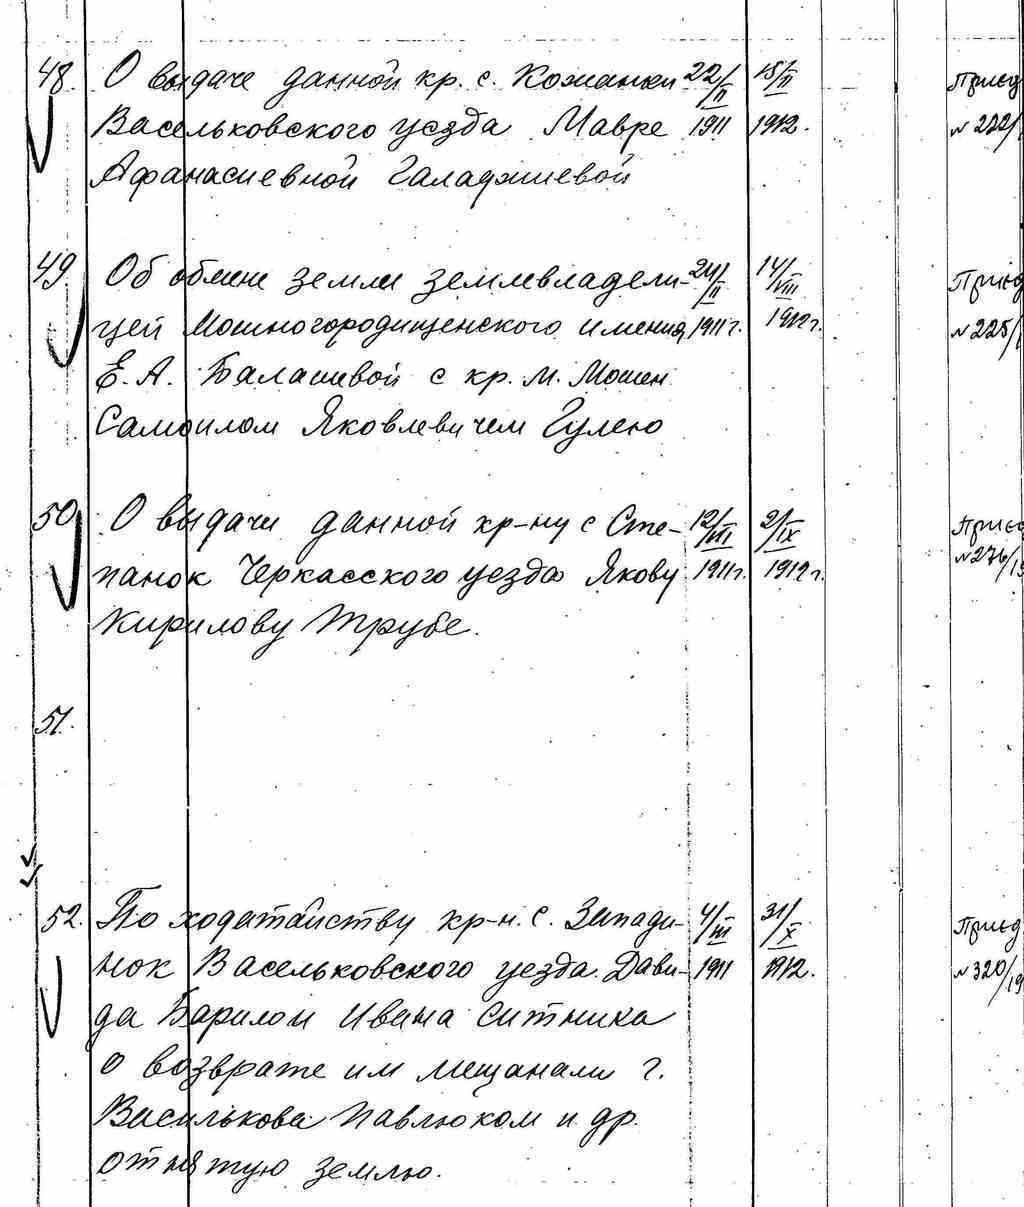 48. О выдаче данной кр. с. Кожанки 22/II 15/II Присд
Васильковского уезда Мавре 1911 1912. № 222/
Афанасиевной Галаджиевой
49. Об обмене земли землевладели- 24/II 14/VIII Присд
цей Мошногородищенского имения 1911 г. 1912 г. № 225/
Е. А. Балашевой с кр. м. Мошен
Самоилом Яковлевичем Гулею
50. О выдачи данной кр-ну с Сте- 12/III 2/IX Присд
панок Черкасского уезда Якову 1911 г. 1912 г. № 276/19
Кирилову Трубе.
51.
52. По ходатайству кр-н. с. Запады- 4/III 31/X Присд
нок Васильковского уезда Дави- 1911 1912. № 320/19
да Барилои Ивана Ситника
о возврате им мещанами г.
Василькова Павлюком и др.
отнятую землю.